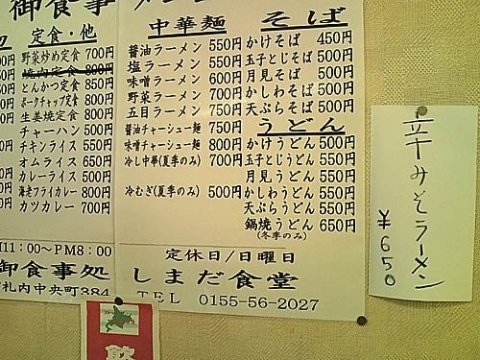 御食事
定食・他
野菜炒め定食 700円
焼肉定食 800円
とんかつ定食 850円
ポークチャップ定食 800円
生姜焼定食 800円
チャーハン 500円
チキンライス 550円
オムライス 650円
カレーライス 500円
海老フライカレー 800円
カツカレー 700円
中華麺
醤油ラーメン 550円
塩ラーメン 550円
味噌ラーメン 600円
野菜ラーメン 700円
五目ラーメン 750円
醤油チャーシュー麺 750円
味噌チャーシュー麺 800円
冷し中華(夏季のみ) 700円
冷むぎ(夏季のみ) 500円
そば
かけそば 450円
玉子とじそば 500円
月見そば 500円
かしわそば 500円
天ぷらそば 500円
うどん
かけうどん 500円
玉子とじうどん 550円
月見うどん 550円
かしわうどん 550円
天ぷらうどん 550円
鍋焼うどん 650円
(冬季のみ)
11:00〜PM8:00
御食事処
札内中央町384
定休日/日曜日
しまだ食堂
TEL 0155-56-2027
辛みそラーメン
¥650